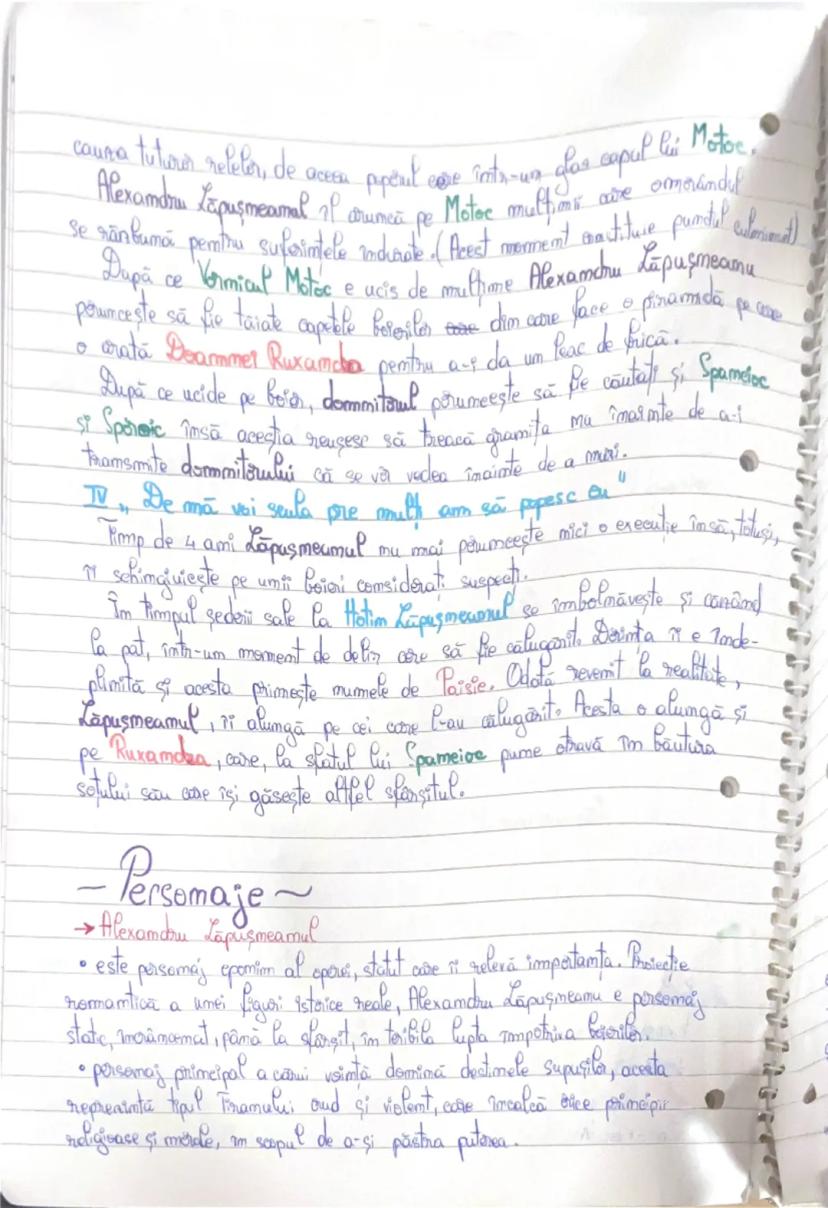 cauza tuturor relelor, de aceea poporul cere într-un glas capul lui Motoc.
Alexandru Lăpușneanul îl aruncă pe Motoc mulțimii care omorându-l
se răzbună pentru suferințele îndurate. (Acest moment constituie punctul culminant)
După ce Vornicul Motoc e ucis de mulțime Alexandru Lăpușneanu
poruncește să fie tăiate capetele boierilor din care face o piramidă pe care
o arată Doamnei Ruxandra pentru a-i da un leac de frică.
După ce ucide pe boieri, domnitorul poruncește să fie căutați și Spancioc
și Stroic însă aceștia reușesc să treacă granița nu înainte de a-i
transmite domnitorului că se vor vedea înainte de a muri.
IV „De mă voi scula pre mulți am să popesc eu"
Timp de 4 ani Lăpușneanul nu mai poruncește nici o execuție însă, totuși,
îi schingiuiește pe unii boieri considerați suspecți.
În timpul șederii sale la Hotin Lăpușneanul se îmbolnăvește și căzând
la pat, într-un moment de delir cere să fie călugărit. Dorința îi e înde-
plinită și acesta primește numele de Paisie. Odată revenit la realitate,
Lăpușneanul, îi alungă pe cei care l-au călugărit. Acesta o alungă și
pe Ruxandra, care, la sfatul lui Spancioc pune otravă în băutura
soțului său care își găsește altfel sfârșitul.
~ Personaje ~
→ Alexandru Lăpușneanul
• este personaj eponim al operei, statut care îi relevă importanța. Proiecție
romantică a unei figuri istorice reale, Alexandru Lăpușneanu e personaj
static, încrâncenat, până la sfârșit, în teribila luptă împotriva boierilor.
• personaj principal a cărui voință domină destinele supușilor, acesta
reprezintă tipul tiranului crud și violent, care încalcă orice principii
religioase și morale, în scopul de a-și păstra puterea.